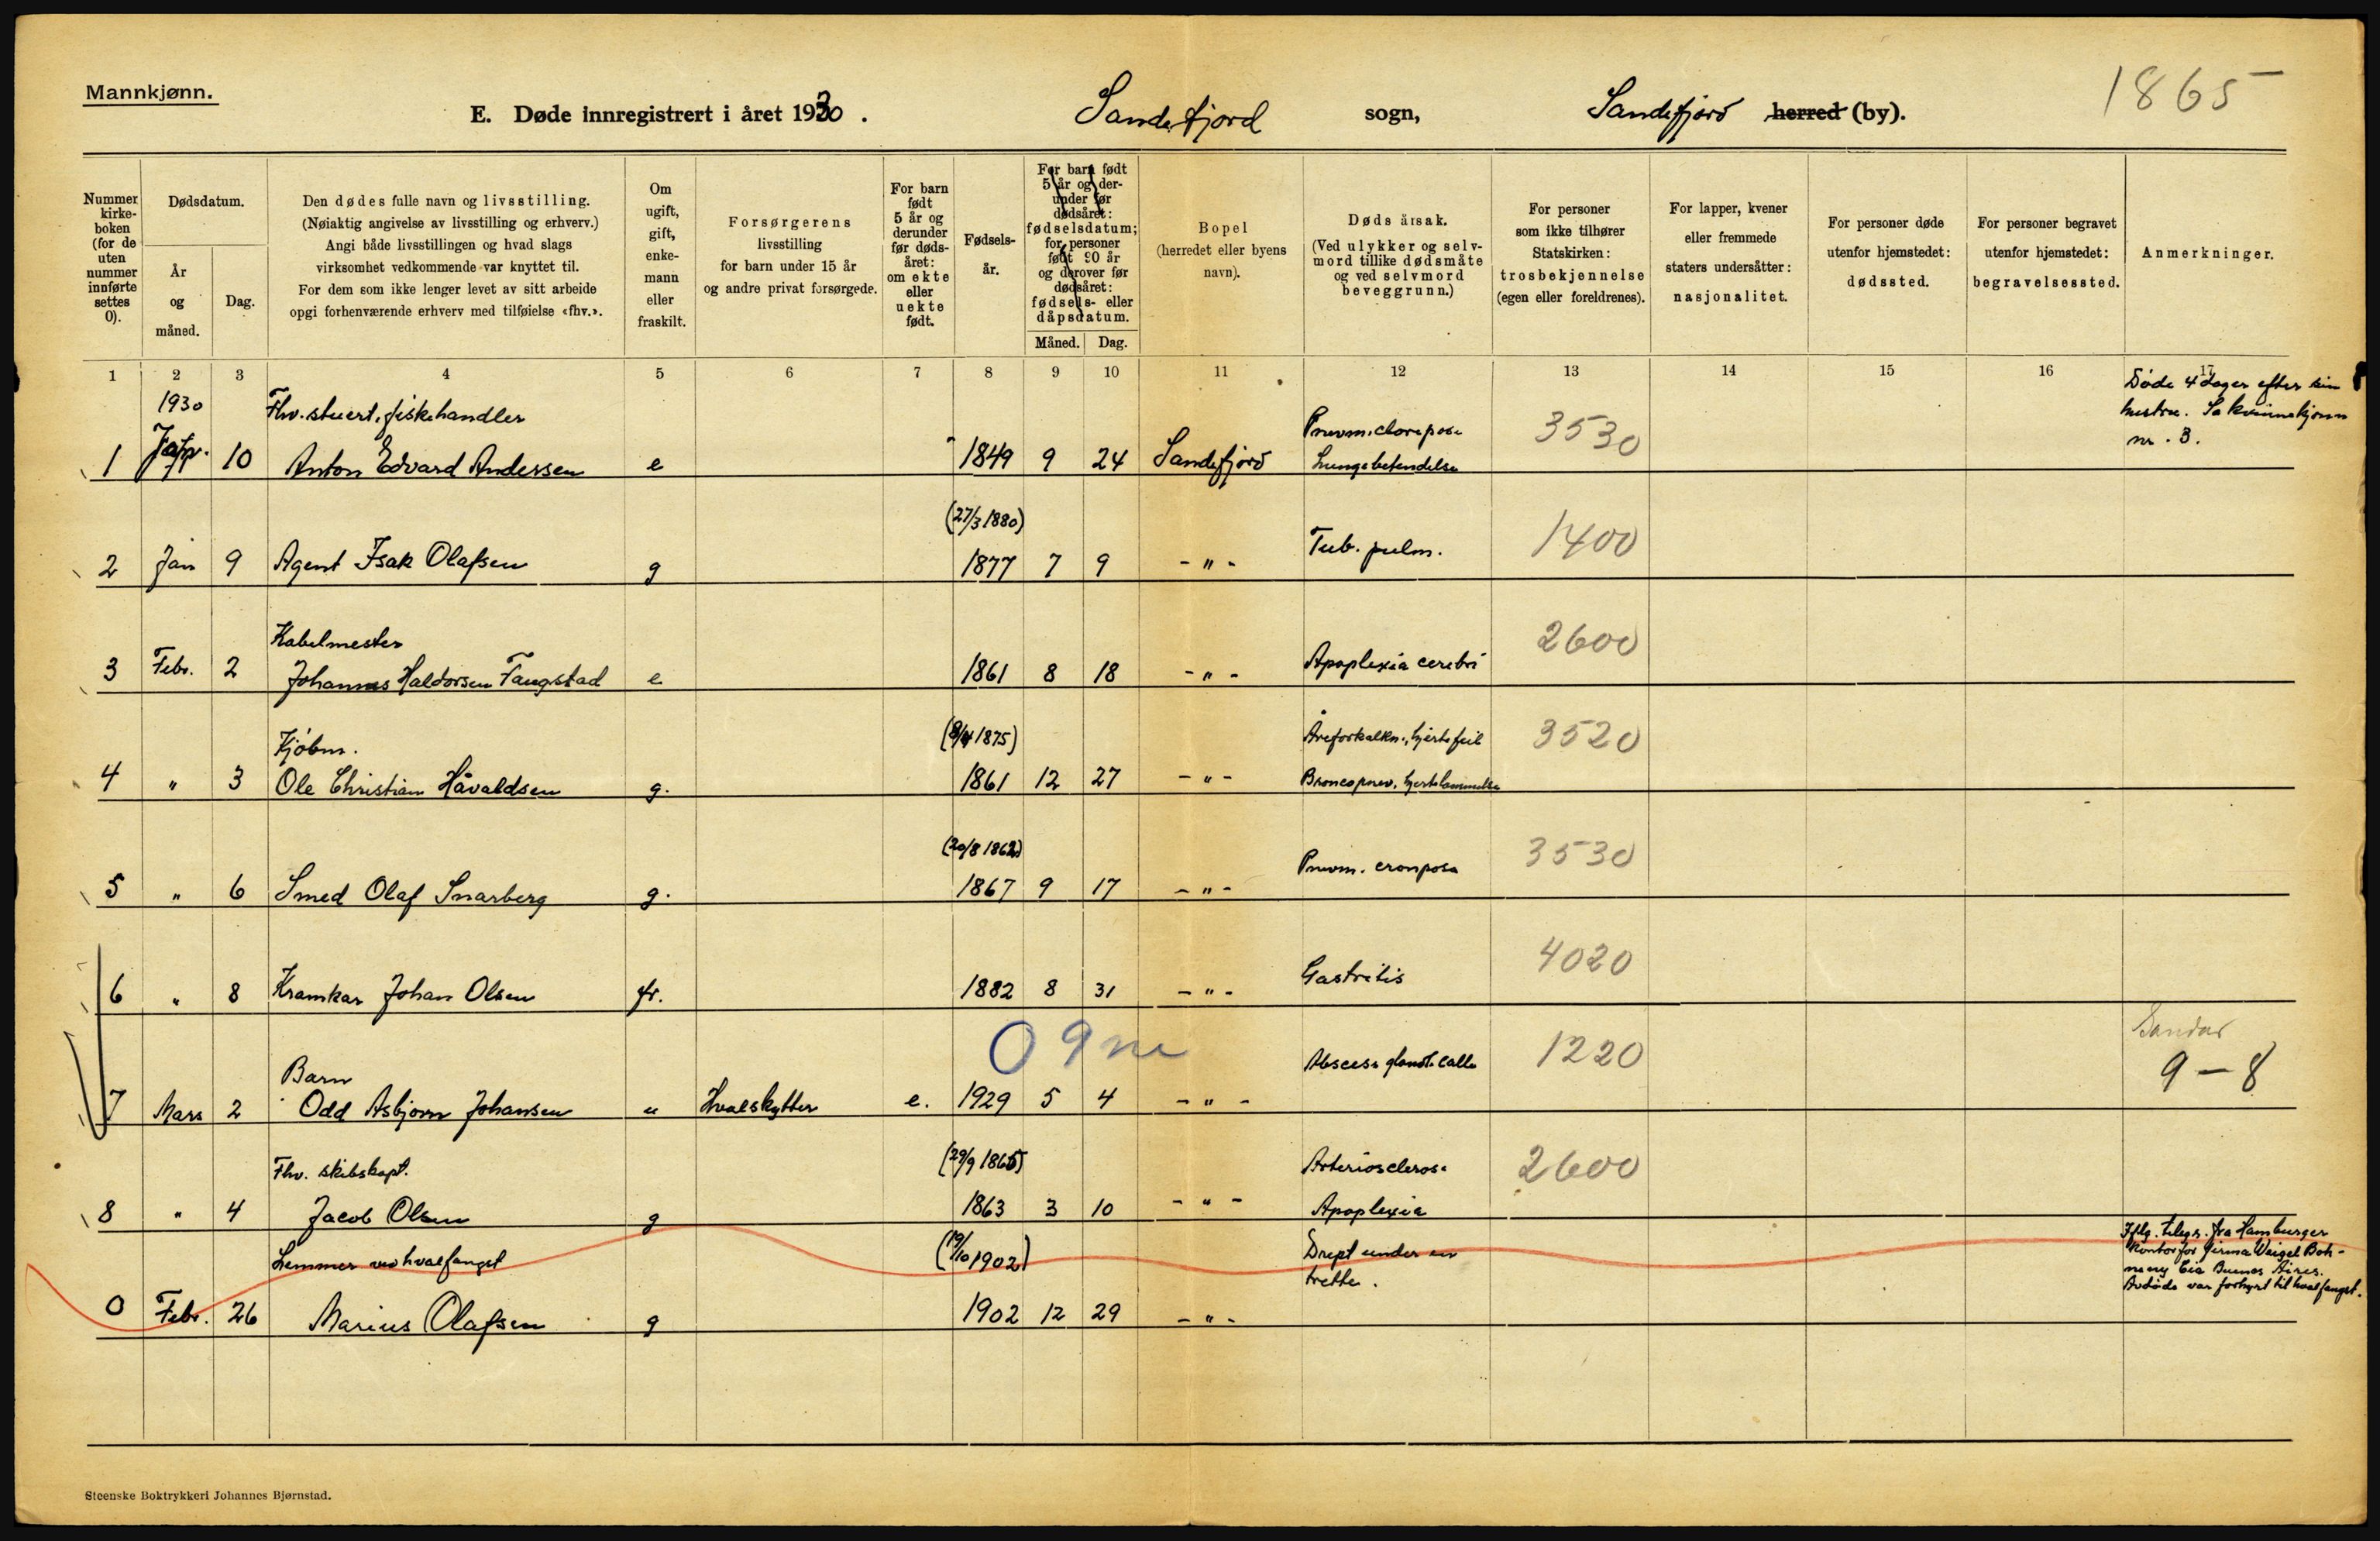 Mannkjønn.
1865
E. Døde innregistrert i året 1930. Sandefjord sogn, Sandefjord herred (by).
Nummer kirke- boken (for de uten nummer innførte settes 0).
Dødsdatum.
År og måned.
Dag.
Den dødes fulle navn og livsstilling.
(Nøiaktig angivelse av livsstilling og erhverv.)
Angi både livsstillingen og hvad slags
virksomhet vedkommende var knyttet til.
For dem som ikke lenger levet av sitt arbeide
opgi forhenværende erhverv med tilføielse «fhv.».
Om ugift, gift, enke- mann eller fraskilt.
Forsørgerens
livsstilling
for barn under 15 år
og andre privat forsørgede.
For barn født 5 år og derunder før døds- året: om ekte eller uekte født.
Fødsels- år.
For barn født 5 år og der- under før dødsåret: fødselsdatum; for personer født 90 år og derover før dødsåret: fødsels- eller dåpsdatum.
Måned. Dag.
Bopel
(herredet eller byens
navn).
Dødsårsak.
(Ved ulykker og selv-
mord tillike dødsmåte
og ved selvmord
beveggrunn.)
For personer
som ikke tilhører
Statskirken:
trosbekjennelse
(egen eller foreldrenes).
For lapper, kvener
eller fremmede
staters undersåtter:
nasjonalitet.
For personer døde
utenfor hjemstedet:
dødssted.
For personer begravet
utenfor hjemstedet:
begravelsessted.
Anmerkninger.
1 2 3 4 5 6 7 8 9 10 11 12 13 14 15 16 17
1930 Fhv. stuert, fiskehandler Døde 4 dager efter sin
hustru. Se kvinnekjønn
nr. 3.
1 Jan. 10 Anton Edvard Andersen e 1849 9 24 Sandefjord Lungebetendelse 3530
(27/3 1880)
2 Jan 9 Agent Isak Olafsen g 1877 7 9 - " - Tub. pulm. 1400
Kabelmester
3 Febr. 2 Johannes Haldorsen Tangstad e 1861 8 18 - " - Apoplexia cerebri 2600
Kjøbm. (8/4 1875) Åreforkalkn., hjertefeil
4 " 3 Ole Christian Håvaldsen g. 1861 12 27 - " - Broncopnev. hjertelammelse 3520
(20/8 1862)
5 " 6 Smed Olaf Snarberg g. 1867 9 17 - " - Pnevm. crouposa 3530
6 " 8 Kramkar Johan Olsen fr. 1882 8 31 - " - Gastritis 4020
0 9 m Sandar
Barn 9 - 8
7 Mars 2 Odd Asbjørn Johansen u Hvalskytter e. 1929 5 4 - " - 1220
Fhv. skibskapt. (29/9 1865) Arteriosclerose
8 " 4 Jacob Olsen g 1863 3 10 - " - Apoplexia 2600
Lemmer ved hvalfangst (19/10 1902) Drept under en
trette.
Iflg. telegr. fra Hamburger
kontor for firma Weigel Boh-
Cia Buenos Aires.
Avdøde var forhyrt til hvalfangst.
0 Febr. 26 Marius Olafsen g 1902 12 29 - " -
Steenske Boktrykkeri Johannes Bjørnstad.